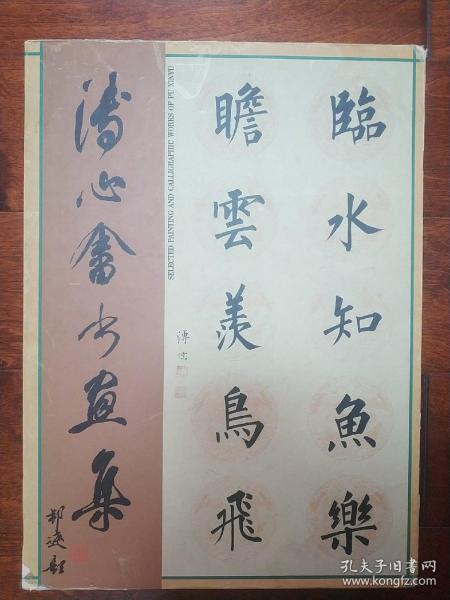 臨水知魚樂
瞻雲羨鳥飛
溥儒
SELECTED PAINTING AND CALLIGRAPHIC WORKS OF PU XINYU
溥心畬书画集
孔夫子旧书网
www.kongfz.com